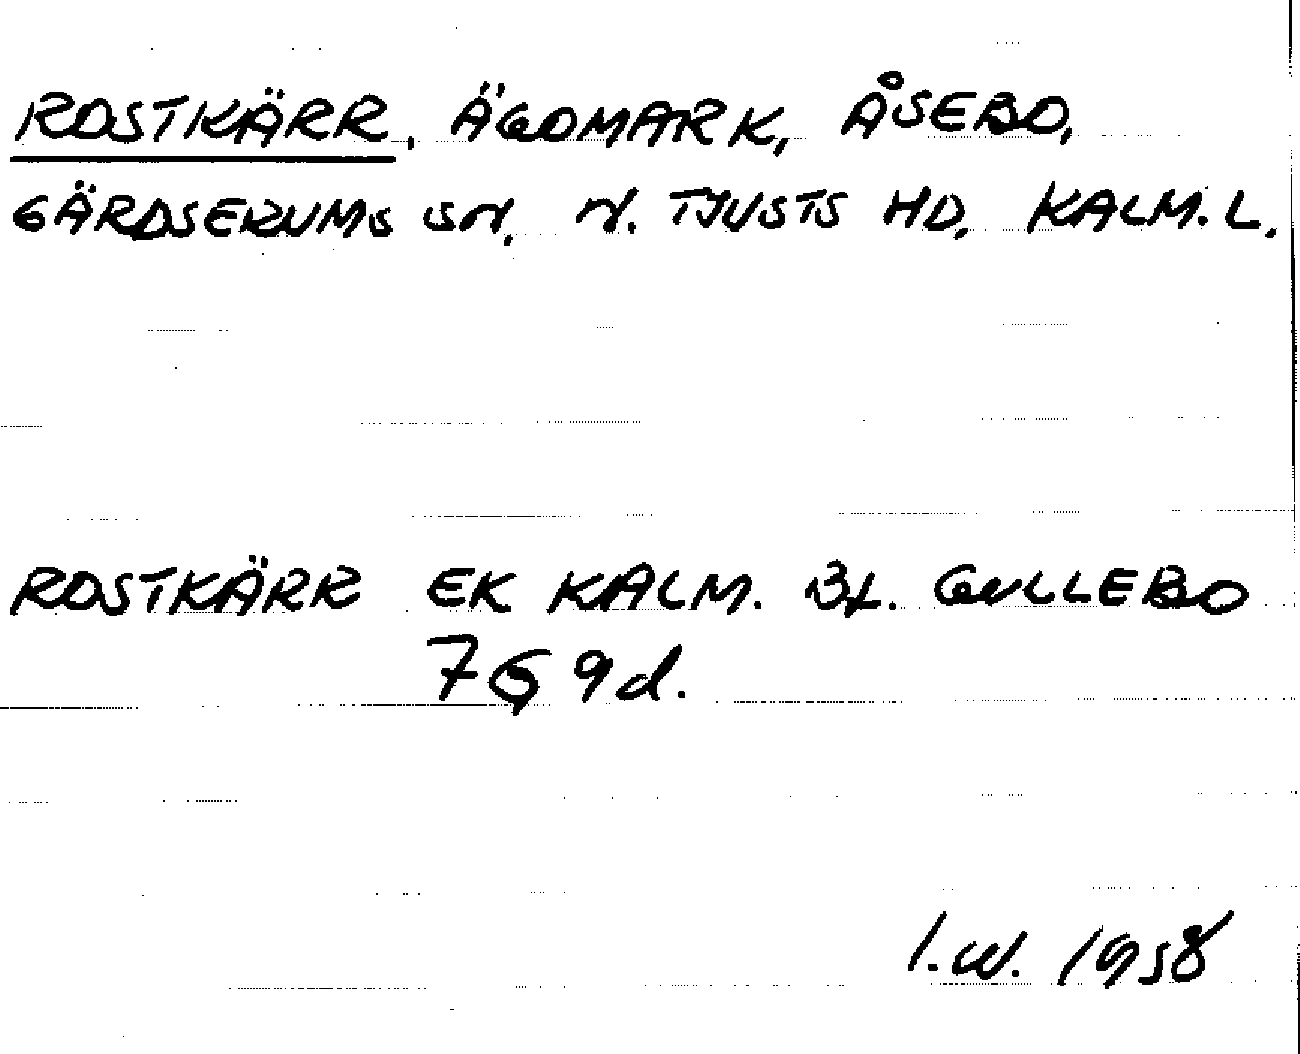 ROSTKÄRR, ÄGOMARK, ÅSEBO,
GÄRDSERUMS SN, N. TJUSTS HD, KALM. L.
ROSTKÄRR EK KALM. BL. GULLEBO
7G 9d.
I.W. 1958